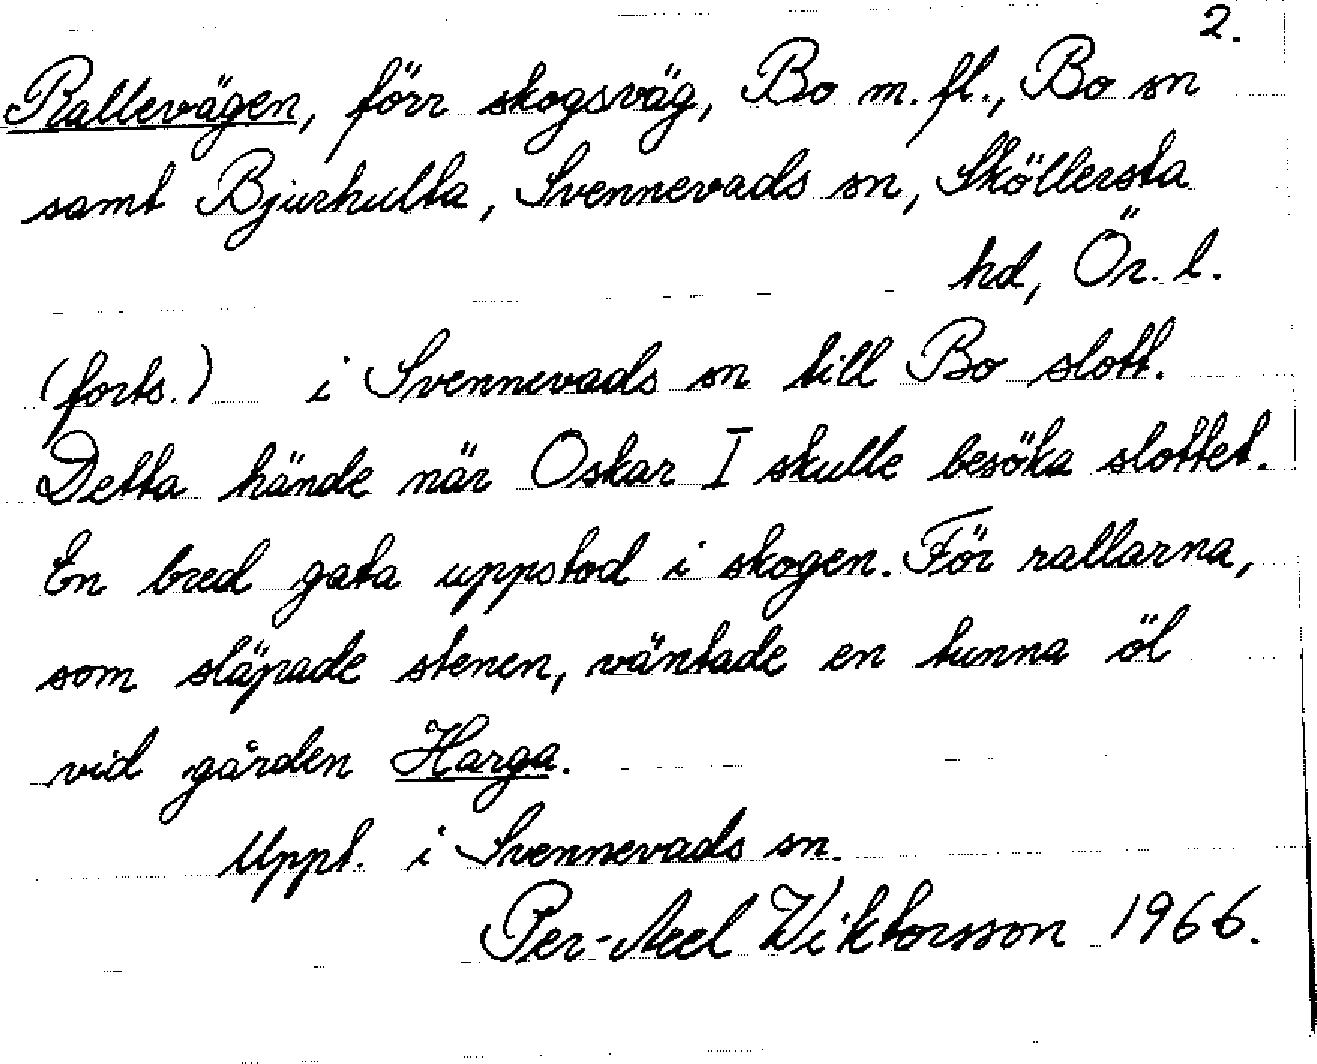 2.
Rallevägen, förr skogsväg, Bo m.fl., Bo sn
samt Bjurhulta, Svennevads sn, Sköllersta
hd, Ör. l.
(forts.) i Svennevads sn till Bo slott.
Detta hände när Oskar I skulle besöka slottet.
En bred gata uppstod i skogen. För rallarna,
som släpade stenen, väntade en tunna öl
vid gården Harga.
Uppt. i Svennevads sn.
Per-Axel Wiktorsson 1966.